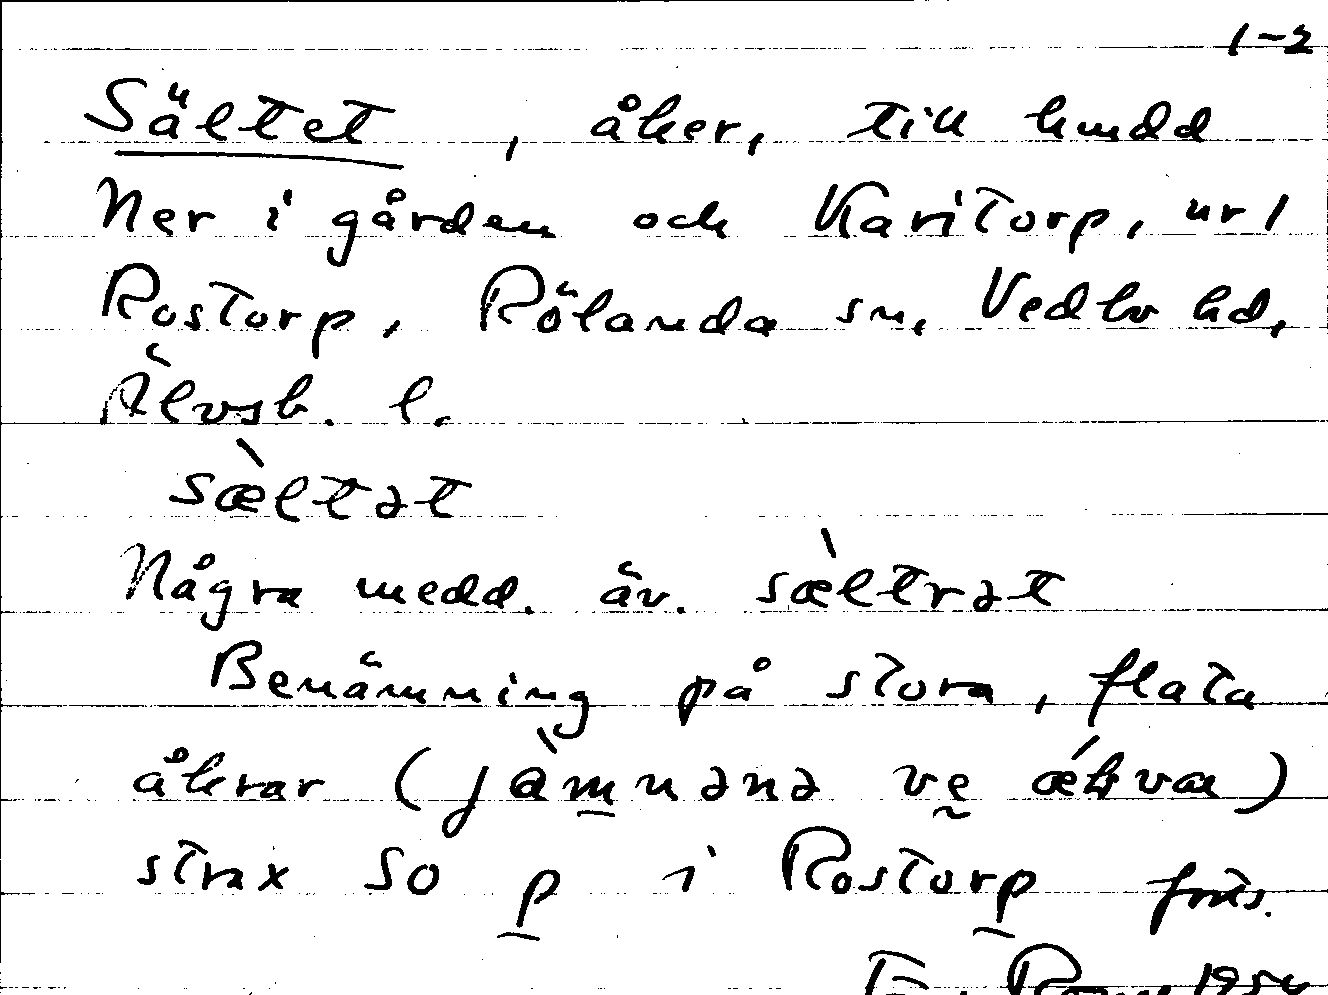 1-2
Sältet, åker, till hmdd
Ner i gården och Karitorp, nr 1
Rostorp, Rölanda sn, Vedbo hd,
Älvsb. l.
sæ̀ltət
Några medd. äv. sæ̀ltrət
Benämning på stora, flata
åkrar (jæ̀mnənə ve ækra)
strax SO p i Rostorp forts.
1954